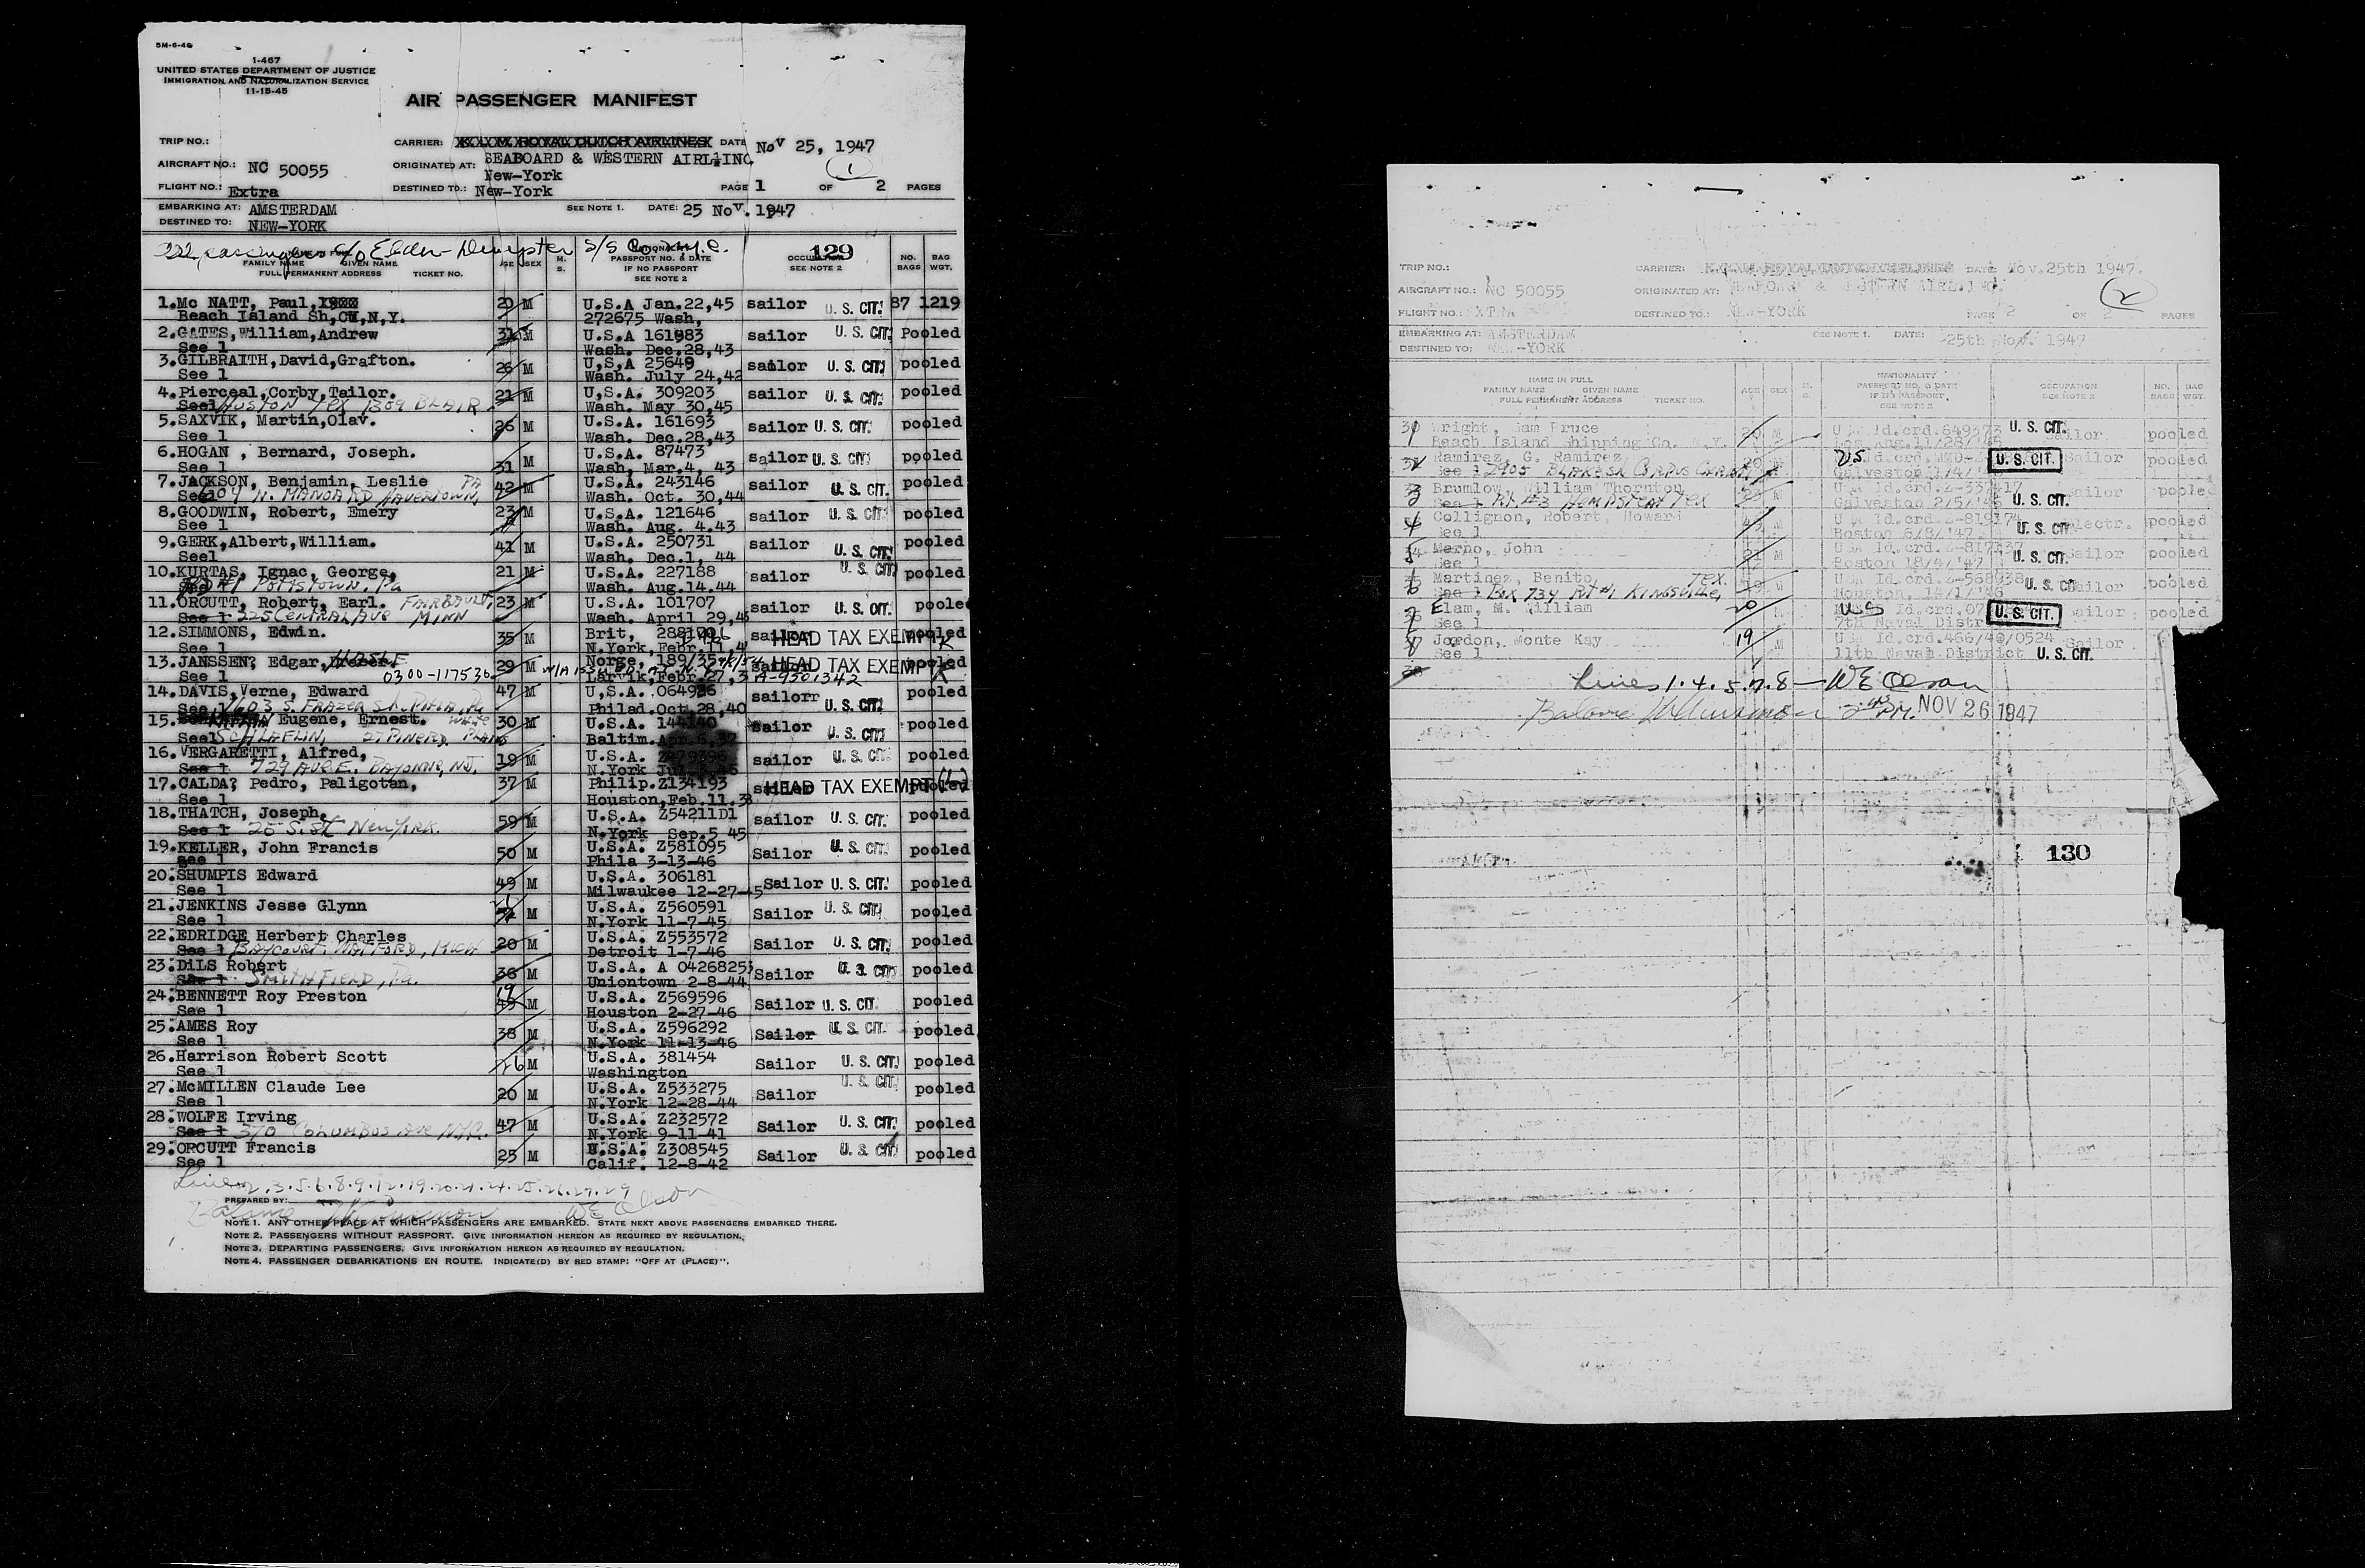 5M-6-46
1-467
UNITED STATES DEPARTMENT OF JUSTICE
IMMIGRATION AND NATURALIZATION SERVICE
11-15-45
AIR PASSENGER MANIFEST
TRIP NO.: CARRIER: K.L.M. ROYAL DUTCH AIRLINES DATE Nov 25, 1947
SEABOARD & WESTERN AIRL.INC.
AIRCRAFT NO.: NC 50055 ORIGINATED AT: New-York 1
FLIGHT NO.: Extra DESTINED TO.: New-York PAGE 1 OF 2 PAGES
EMBARKING AT: AMSTERDAM SEE NOTE 1. DATE: 25 Nov. 1947
DESTINED TO: NEW-YORK
passengers c/o Elder Dempster S/S Co. N.Y.C. 129
FAMILY NAME GIVEN NAME AGE SEX M. S. NATIONALITY PASSPORT NO. & DATE OCCUPATION NO. BAG
FULL PERMANENT ADDRESS TICKET NO. IF NO PASSPORT SEE NOTE 2 SEE NOTE 2 BAGS WGT.
1. Mc NATT, Paul, 20 M U.S.A Jan.22,45 sailor U. S. CIT. 87 1219
Beach Island Sh,CM,N,Y. 272675 Wash,
2. GATES,William,Andrew 31 M U.S.A 161983 sailor U. S. CIT. Pooled
See 1 Wash. Dec.28,43
3. GILBRAITH,David,Grafton. 26 M U,S,A 25649 sailor U. S. CIT. pooled
See 1 Wash. July 24,42
4. Pierceal,Corby,Tailor. 21 M U,S.A. 309203 sailor U. S. CIT. pooled
See1 HUSTON TEX 1309 BLAIR. Wash. May 30,45
5. SAXVIK, Martin,Olav. 26 M U.S.A. 161693 sailor U. S. CIT. pooled
See 1 Wash. Dec.28,43
6. HOGAN , Bernard, Joseph. 31 M U.S.A. 87473 sailor U. S. CIT. pooled
See 1 Wash, Mar.4, 43
7. JACKSON, Benjamin, Leslie PA 42 M U.S.A. 243146 sailor U. S. CIT. pooled
See1 N. MANOA RD HAVERTOWN, Wash. Oct. 30,44
8. GOODWIN, Robert, Emery 23 M U.S.A. 121646 sailor U. S. CIT. pooled
See 1 Wash. Aug. 4.43
9. GERK,Albert,William. 41 M U.S.A. 250731 sailor U. S. CIT. pooled
See1 Wash. Dec.1, 44
10. KURTAS, Ignac, George, 21 M U.S.A. 227188 sailor U. S. CIT. pooled
RD #1 POTTSTOWN, Pa Wash. Aug.14.44
11. ORCUTT, Robert, Earl. FAIRBAULT, 23 M U.S.A. 101707 sailor U. S. CIT. pooled
See 1 225 CENTRAL AVE MINN Wash. April 29,43
12. SIMMONS, Edwin. 35 M Brit, sailor HEAD TAX EXEMPT pooled
See 1 N.York,Febr.11,4
13. JANSSEN, Edgar, 29 M Norge, 189/35 sailor HEAD TAX EXEMPT pooled
See 1 0300-117536 Larvik,Febr.27,3 A-9501342
14. DAVIS,Verne, Edward 47 M U,S.A. 064926 sailorr U. S. CIT. pooled
See 1 1603 S. FRAZER St. PHILA, Pa Philad.Oct.28,40
15. Eugene, Ernest. WHITE 30 M U.S.A. 144140 sailor U. S. CIT. pooled
See1 SCHLAFLIN, 27 PINE RD. PLAINS Baltim.Apr.6,37
16. VERGARETTI, Alfred, 19 M U.S.A. sailor U. S. CIT. pooled
See 1 729 AVE E. BAYONNE, NJ. N.York
17. CALDA, Pedro, Paligotan, 37 M Philip.Z134193 sailor HEAD TAX EXEMPT pooled
See 1 Houston,Feb.11.38
18. THATCH, Joseph. 59 M U.S.A. Z54211D1 sailor U. S. CIT. pooled
See 1 25 S. St NEW YORK. N.York Sep.5 45
19. KELLER, John Francis 50 M U.S.A. Z581095 Sailor U. S. CIT. pooled
see 1 Phila 3-13-46
20. SHUMPIS Edward 49 M U.S.A. 306181 Sailor U. S. CIT. pooled
See 1 Milwaukee 12-27-45
21. JENKINS Jesse Glynn M U.S.A. Z560591 Sailor U. S. CIT. pooled
See 1 N.York 11-7-45
22. EDRIDGE Herbert Charles 20 M U.S.A. Z553572 Sailor U. S. CIT. pooled
See 1 BAYCOURT. WATFORD, MICH Detroit 1-7-46
23. DiLS Robert 36 M U.S.A. A 04268253 Sailor U. S. CIT. pooled
See 1 SMITHFIELD, Pa. Uniontown 2-8-44
24. BENNETT Roy Preston 19 M U.S.A. Z569596 Sailor U. S. CIT. pooled
See 1 Houston 2-27-46
25. AMES Roy 38 M U.S.A. Z596292 Sailor U. S. CIT. pooled
See 1 N.York 11-13-46
26. Harrison Robert Scott 26 M U.S.A. 381454 Sailor U. S. CIT. pooled
See 1 Washington
27. McMILLEN Claude Lee 20 M U.S.A. Z533275 Sailor U. S. CIT. pooled
See 1 N.York 12-28-44
28. WOLFE Irving 47 M U.S.A. Z232572 Sailor U. S. CIT. pooled
See 1 370 COLUMBUS AVE NYC. N.York 9-11-41
29. ORCUTT Francis 25 M U.S.A. Z308545 Sailor U. S. CIT. pooled
See 1 Calif. 12-8-42
Lines 2.3.5.6.8.9.12.19.20.21.24.25.26.27.29
PREPARED BY: WE Olson
NOTE 1. ANY OTHER PLACE AT WHICH PASSENGERS ARE EMBARKED. STATE NEXT ABOVE PASSENGERS EMBARKED THERE.
NOTE 2. PASSENGERS WITHOUT PASSPORT. GIVE INFORMATION HEREON AS REQUIRED BY REGULATION.
NOTE 3. DEPARTING PASSENGERS. GIVE INFORMATION HEREON AS REQUIRED BY REGULATION.
NOTE 4. PASSENGER DEBARKATIONS EN ROUTE. INDICATE(D) BY RED STAMP: "OFF AT (PLACE)".
TRIP NO.: CARRIER: K.L.M. ROYAL DUTCH AIRLINES DATE: Nov.25th 1947.
AIRCRAFT NO.: NC 50055 ORIGINATED AT: SEABOARD & WESTERN AIRL.INC. 2
FLIGHT NO.: EXTRA DESTINED TO.: NEW-YORK PAGE 2 OF 2 PAGES
EMBARKING AT: AMSTERDAM SEE NOTE 1. DATE: 25th Nov. 1947
DESTINED TO: NEW-YORK
NAME IN FULL NATIONALITY
FAMILY NAME GIVEN NAME AGE SEX M. S. PASSPORT NO. & DATE OCCUPATION NO. BAG
FULL PERMANENT ADDRESS TICKET NO. IF NO PASSPORT, SEE NOTE 2 SEE NOTE 2 BAGS WGT.
1 Wright, Sam Bruce 20 M Id.crd.649373 U. S. CIT. Sailor pooled
Beach Island Shipping Co. N.Y. Los Ang.11/28/'45
2 Ramirez, G. Ramirez 20 US Id.crd. U. S. CIT. Sailor pooled
See 1 2905 BLAKE St CORPUS CHRISTI Galveston
3 Brumlow, William Thornton M Id.crd. U. S. CIT. Sailor pooled
See 1 Rt #3 HEMPSTEAD TEX Galveston 2/5/'46
4 Collignon, Robert Howard M Id.crd.Z-819174 U. S. CIT. electr. pooled
See 1 Boston 6/8/'47
5 Merno, John M USA Id.crd.Z-817137 U. S. CIT. Sailor pooled
See 1 Boston 18/4/'47
6 Martinez, Benito TEX. 19 M USA Id.crd.Z-568938 U. S. CIT. Sailor pooled
See 1 Box 734 Rt #1 KINGSVILLE, Houston, 14/1/'46
7 Elam, M. William 20 M US Id.crd. U. S. CIT. Sailor pooled
See 1 7th Naval Distr
8 Jordon, Monte Kay 19 M USA Id.crd.466/40/0524 Sailor
See 1 11th Naval District U. S. CIT.
Lines 1.4.5.7.8 — WE Olson
PM. NOV 26 1947
130